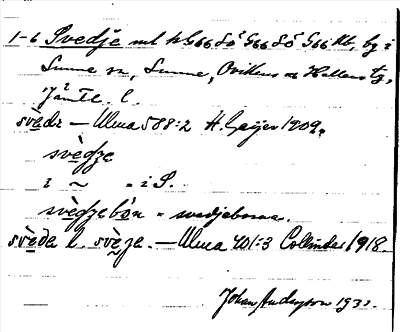 1-6 Svedje ml h G66 S5 G66 S5 G66 Rb, bg i
Sunne sn, Sunne, Ovikens o Hallens tg,
Jämtl. l.
svède — Ulma 588:2 H. Geijer 1909.
svèdze
i ~ = i S.
svèdzebòn = svedjeborna.
svèda l. svèze. — Ulma 401:3 Collinder 1918.
Johan Anderson 193